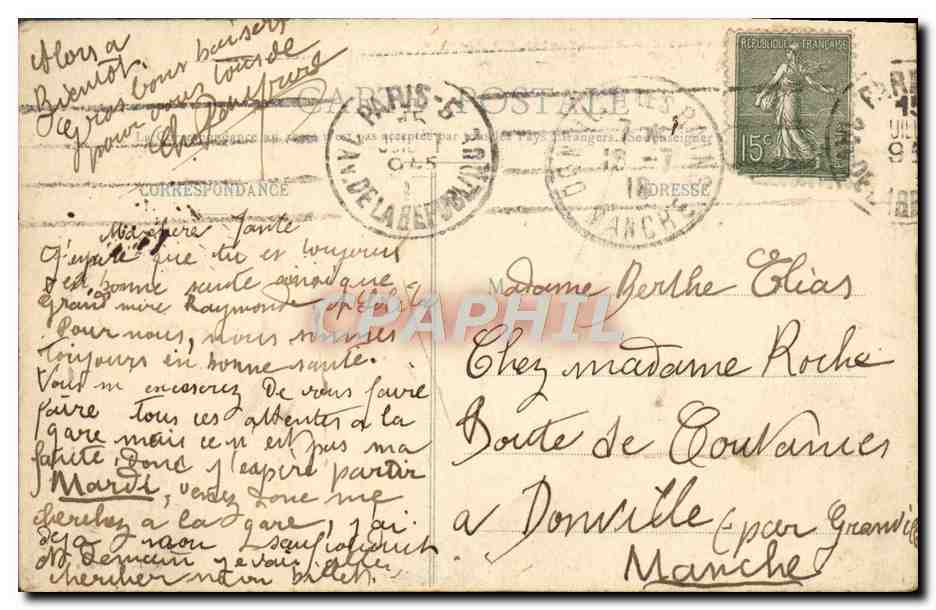 Alors a
Bientôt.
Gros bons baisers
pour vous tous de
CARTE POSTALE
La Correspondance au n'est pas acceptée par tous les Pays Etrangers. (Se renseigner
CORRESPONDANCE
ADRESSE
PARIS-
15
945
AV. DE LA REPUBLIQUE
7
18 -7
18
DONVILLE
MANCHE
REPUBLIQUE FRANÇAISE
15c
PARIS
15
AV. DE
Ma chère Tante
J'espère que tu es toujours
en bonne santé ainsi que
Grand mère Raymonde
Pour nous, nous sommes
toujours en bonne santé.
Vous m'excuserez De vous faire
faire tous ces attentes a la
gare mais ce n'est pas ma
faute Donc j'espère partir
Mardi, venez donc me
cherchez a la gare, j'ai
deja
Demain je vais aller
chercher mon billet.
Madame Berthe Elias
Chez madame Roche
Route de Coutances
a Donville (par Granville
Manche
CPAPHIL